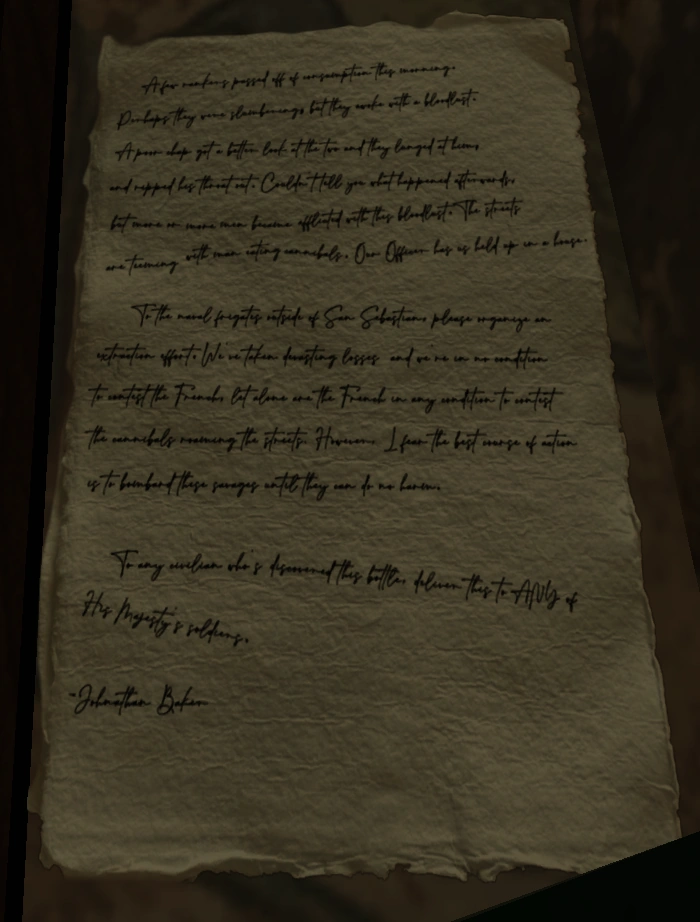 A few rankers passed off of consumption this morning.
Perhaps they were slumbering, but they awoke with a bloodlust.
A poor chap got a better look at the two and they lunged at him,
and ripped his throat out. Couldn't tell you what happened afterwards,
but more an more men become afflicted with this bloodlust. The streets
are teeming with man eating cannibals. Our Officer has us held up in a house.
To the naval frigates outside of San Sebastian, please organize an
extraction effort. We've taken devasting losses and we're in no condition
to contest the French, let alone are the French in any condition to contest
the cannibals rooming the streets. However, I fear the best course of action
is to bombard these savages until they can do no harm.
To any civilian who's discovered this bottle, deliver this to ANY of
His Majesty's soldiers.
-Johnathan Baker